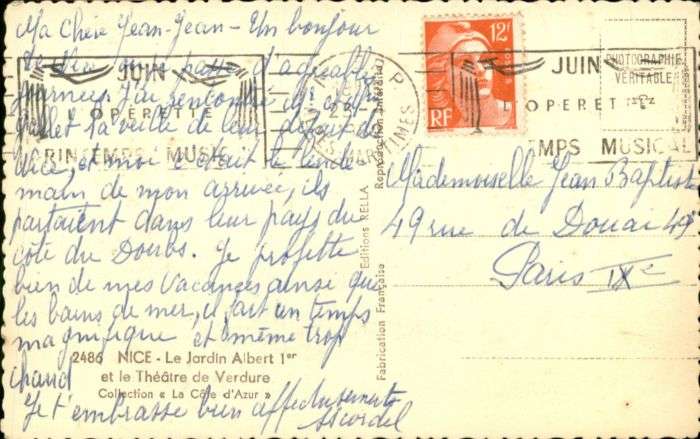 Ma Chère Jean-Jean - Un bonjour
de Nice où je passe d'agréables
journées. J'ai rencontré
la veille de leur départ de
Nice, et moi c'était le lende
main de mon arrivée, ils
partaient dans leur pays du
côté du Doubs. Je profite
bien de mes vacances ainsi que
les bains de mer, il fait un temps
magnifique et même trop
chaud
Je t'embrasse bien affectueusement
2486 NICE - Le Jardin Albert 1er
et le Théâtre de Verdure
Collection « La Côte d'Azur »
JUIN
L'OPERETTE
PRINTEMPS MUSICAL
Fabrication Française Editions RELLA Reproduction interdite
12F
RF
JUIN
L'OPERET
MPS MUSICAL
PHOTOGRAPHIE
VERITABLE
Mademoiselle Jean Baptist
49 rue de Douai 49
Paris IXe